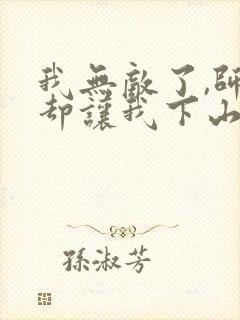 我無敵了,師
却讓我下山
孫淑芳